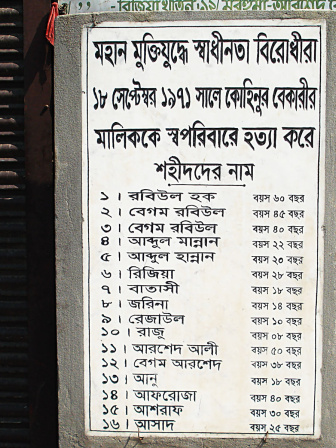 মহান মুক্তিযুদ্ধে স্বাধীনতা বিরোধীরা
১৮ সেপ্টেম্বর ১৯৭১ সালে কোহিনুর বেকারীর
মালিককে স্বপরিবারে হত্যা করে
শহীদদের নাম
১। রবিউল হক বয়স ৬০ বছর
২। বেগম রবিউল বয়স ৪৫ বছর
৩। বেগম রবিউল বয়স ৪০ বছর
৪। আব্দুল মান্নান বয়স ২২ বছর
৫। আব্দুল হান্নান বয়স ২০ বছর
৬। রিজিয়া বয়স ২৮ বছর
৭। বাতাসী বয়স ১৮ বছর
৮। জরিনা বয়স ১৪ বছর
৯। রেজাউল বয়স ১০ বছর
১০। রাজু বয়স ০৮ বছর
১১। আরশেদ আলী বয়স ৫০ বছর
১২। বেগম আরশেদ বয়স ৩৮ বছর
১৩। আনু বয়স ১৮ বছর
১৪। আফরোজা বয়স ৪০ বছর
১৫। আশরাফ বয়স ৩০ বছর
১৬। আসাদ বয়স ২৫ বছর